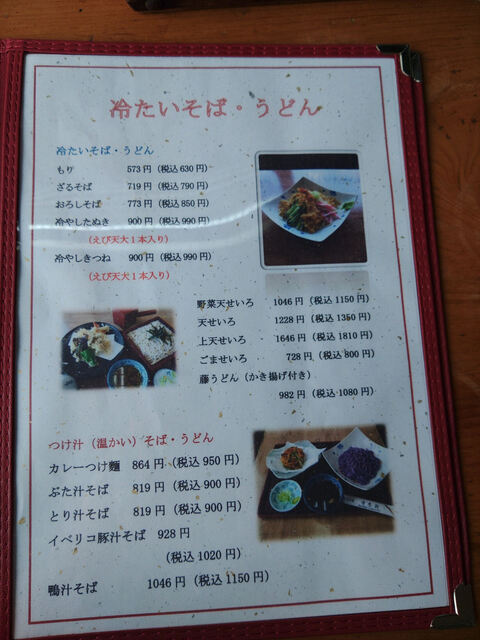 冷たいそば・うどん
冷たいそば・うどん
もり 573円（税込630円）
ざるそば 719円（税込790円）
おろしそば 773円（税込850円）
冷やしたぬき 900円（税込990円）
（えび天大1本入り）
冷やしきつね 900円（税込990円）
（えび天大1本入り）
野菜天せいろ 1046円（税込1150円）
天せいろ 1228円（税込1350円）
上天せいろ 1646円（税込1810円）
ごませいろ 728円（税込800円）
藤うどん（かき揚げ付き）
982円（税込1080円）
つけ汁（温かい）そば・うどん
カレーつけ麺 864円（税込950円）
ぶた汁そば 819円（税込900円）
とり汁そば 819円（税込900円）
イベリコ豚汁そば 928円
（税込1020円）
鴨汁そば 1046円（税込1150円）